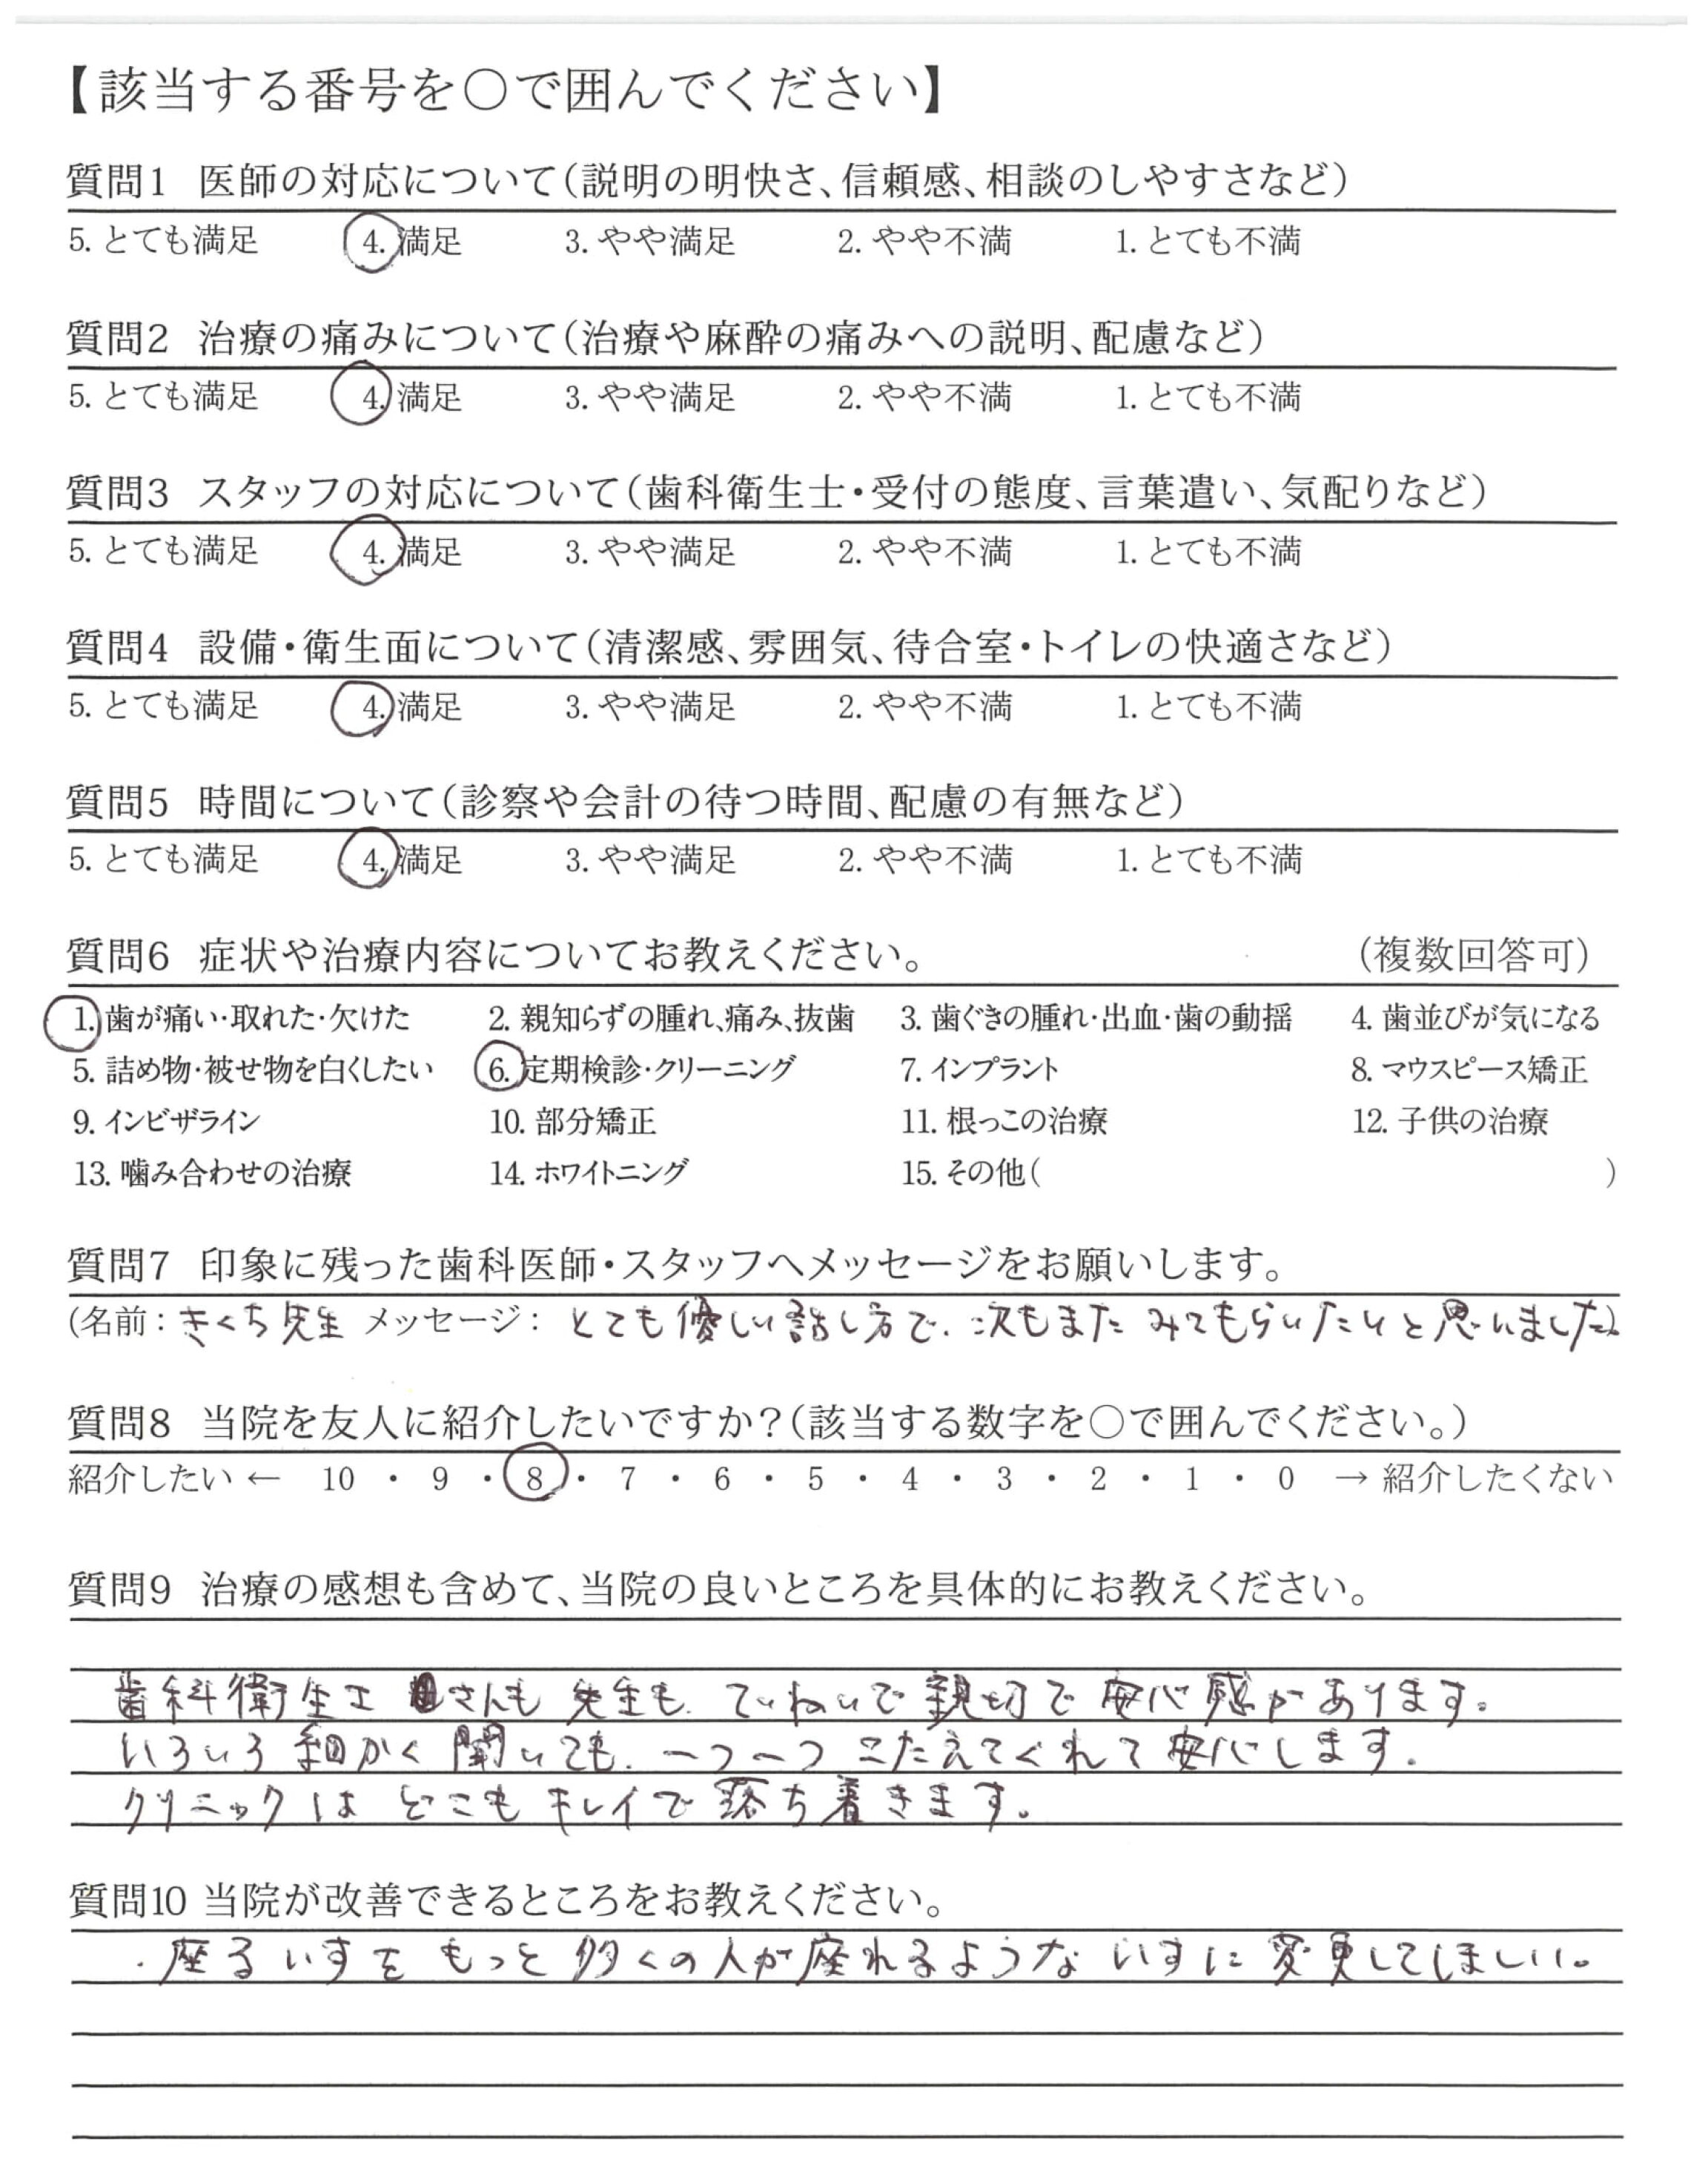 【該当する番号を〇で囲んでください】
質問1 医師の対応について(説明の明快さ、信頼感、相談のしやすさなど)
5. とても満足 4. 満足 3. やや満足 2. やや不満 1. とても不満
質問2 治療の痛みについて(治療や麻酔の痛みへの説明、配慮など)
5. とても満足 4. 満足 3. やや満足 2. やや不満 1. とても不満
質問3 スタッフの対応について(歯科衛生士・受付の態度、言葉遣い、気配りなど)
5. とても満足 4. 満足 3. やや満足 2. やや不満 1. とても不満
質問4 設備・衛生面について(清潔感、雰囲気、待合室・トイレの快適さなど)
5. とても満足 4. 満足 3. やや満足 2. やや不満 1. とても不満
質問5 時間について(診察や会計の待つ時間、配慮の有無など)
5. とても満足 4. 満足 3. やや満足 2. やや不満 1. とても不満
質問6 症状や治療内容についてお教えください。 (複数回答可)
1. 歯が痛い・取れた・欠けた 2. 親知らずの腫れ、痛み、抜歯 3. 歯ぐきの腫れ・出血・歯の動揺 4. 歯並びが気になる
5. 詰め物・被せ物を白くしたい 6. 定期検診・クリーニング 7. インプラント 8. マウスピース矯正
9. インビザライン 10. 部分矯正 11. 根っこの治療 12. 子供の治療
13. 噛み合わせの治療 14. ホワイトニング 15. その他( )
質問7 印象に残った歯科医師・スタッフへメッセージをお願いします。
(名前：きくち先生 メッセージ：とても優しい話し方で、次もまた みてもらいたいと思いました)
質問8 当院を友人に紹介したいですか？(該当する数字を〇で囲んでください。)
紹介したい ← 10 ・ 9 ・ 8 ・ 7 ・ 6 ・ 5 ・ 4 ・ 3 ・ 2 ・ 1 ・ 0 → 紹介したくない
質問9 治療の感想も含めて、当院の良いところを具体的にお教えください。
歯科衛生士さんも 先生も、ていねいで親切で 安心感があります。
いろいろ細かく聞いても、一つ一つ こたえてくれて安心します。
クリニックは どこもキレイで落ち着きます。
質問10 当院が改善できるところをお教えください。
・座るいすを もっと多くの人が座れるような いすに変更してほしい。